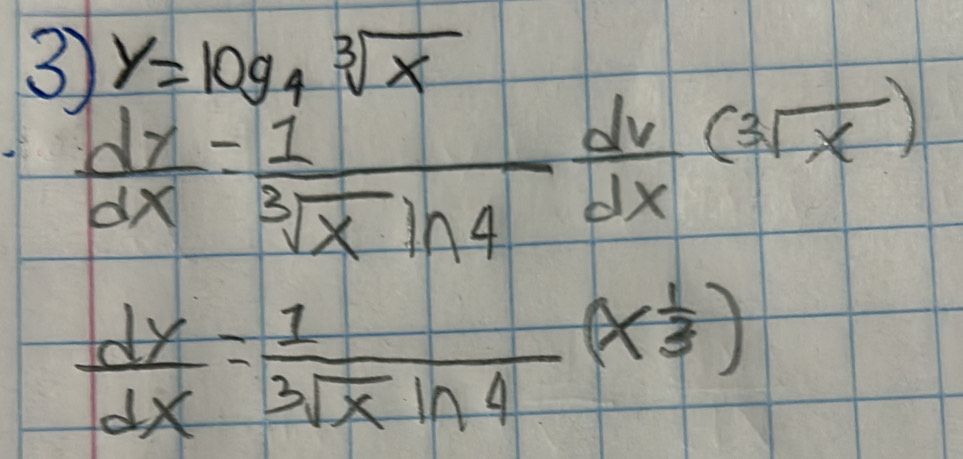 3) y = log₄ ∛x
dy/dx = 1/(∛x ln 4) dv/dx (∛x)
dy/dx = 1/(∛x ln 4) (x^(1/3))